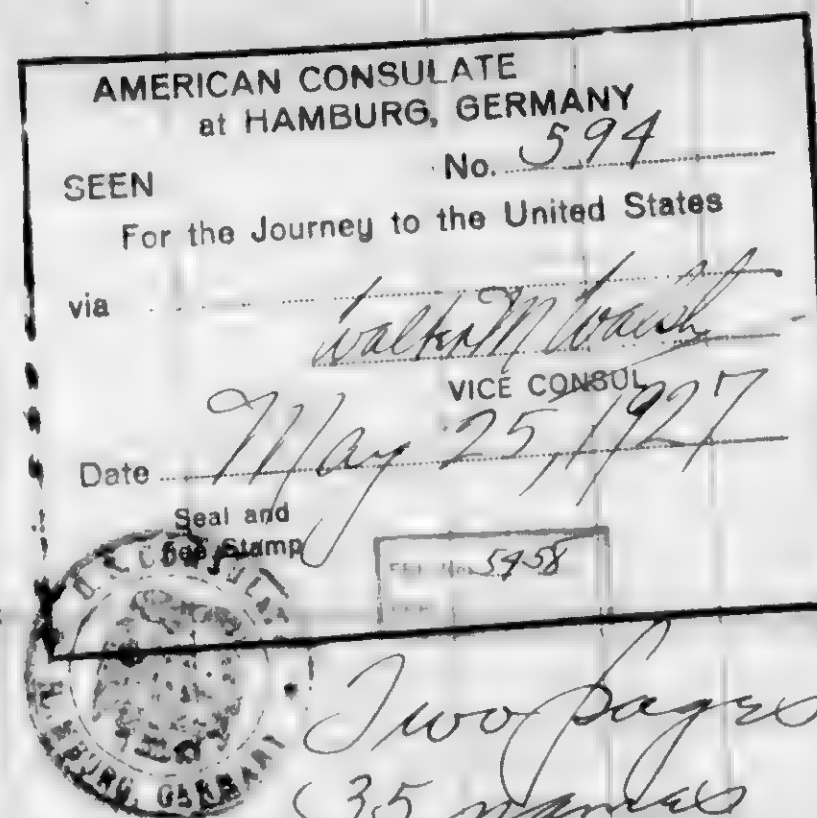 AMERICAN CONSULATE
at HAMBURG, GERMANY
SEEN No. 594
For the Journey to the United States
via
Walter M Walsh
VICE CONSUL
Date May 25, 1927
Seal and
Fee Stamp
HAMBURG, GERMANY
Two pages
35 names